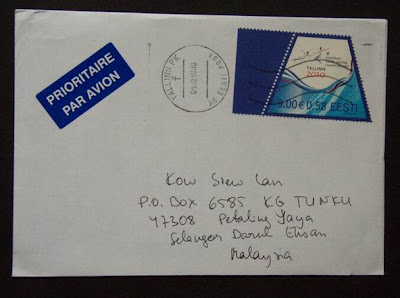 PRIORITAIRE
PAR AVION
TALLINN PK
AS EESTI POST
TALLINN
2010
9.00 € 0,58 EESTI
Kow Siew Lan
P.O. Box 6585 KG TUNKU
47308 Petaling Jaya
Selangor Darul Ehsan
Malaysia